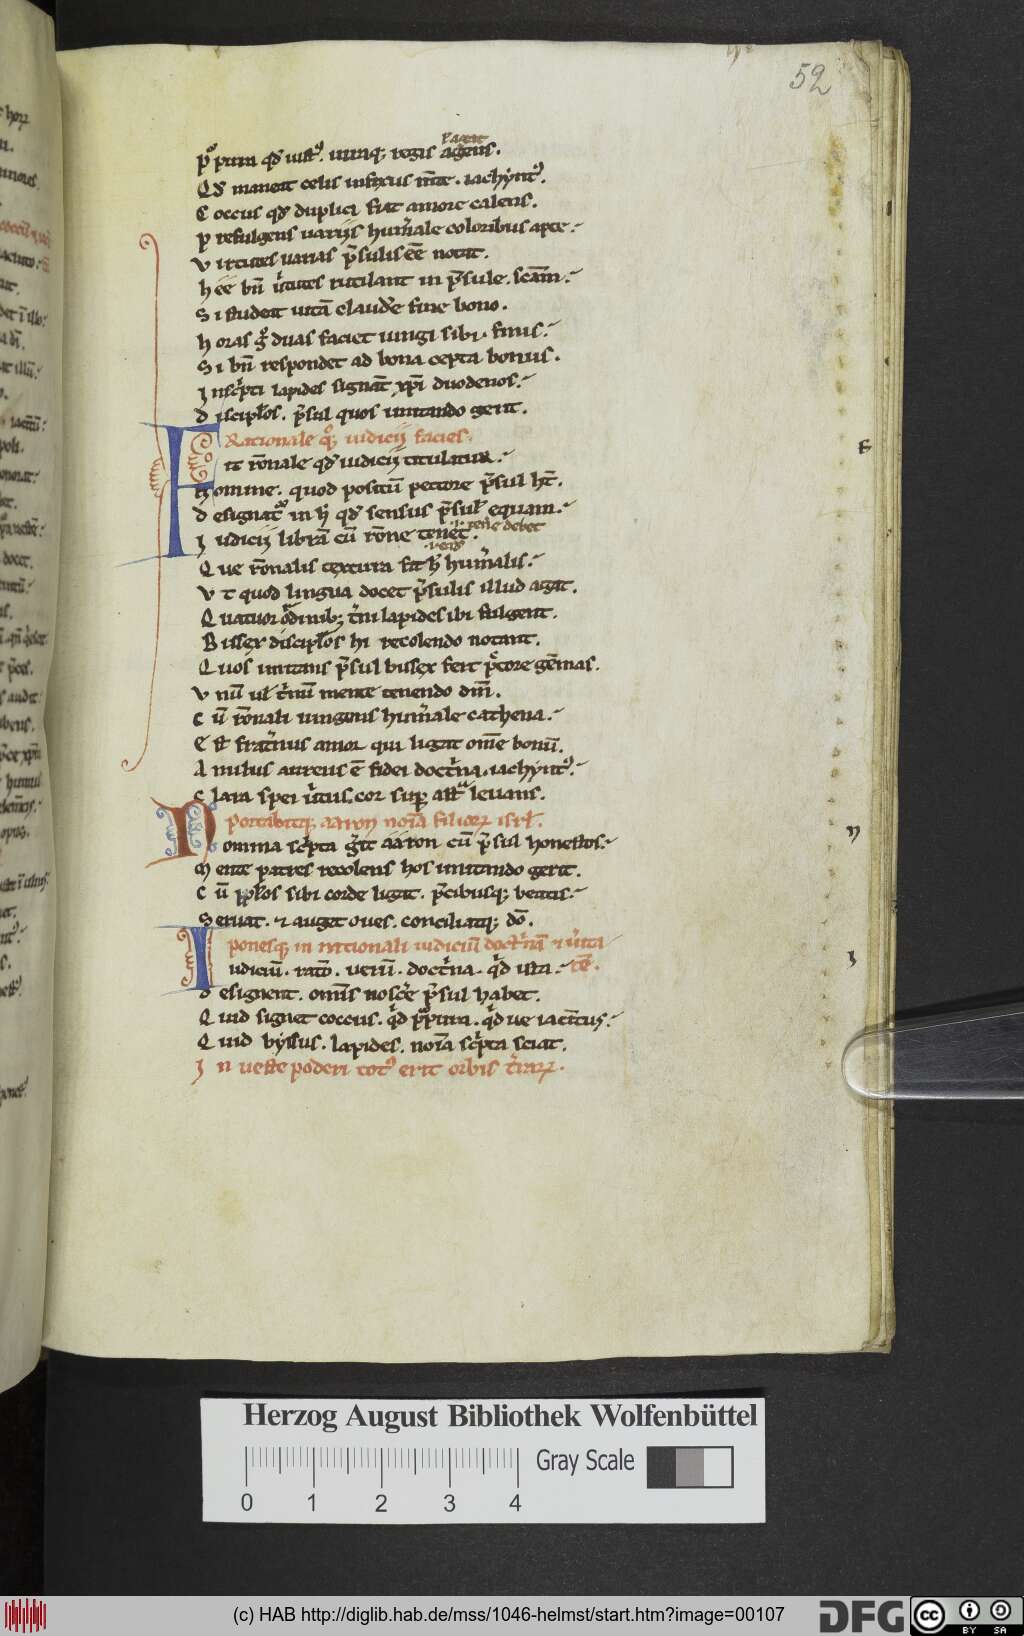 52
pͦpura qd̄ iustꝰ. uirꝗ; regis agens.
Qd̄ maneat celis infixus m̄te. iachẏntꝰ.
Coccus qd̄ duplici fiat amore calens.
prefulgens uariis hum̄ale coloribus apte.
Virtutes uarias p̄sulis eē notat.
hee bn̄ ũtutes rutilant in p̄sule. scām.
Si studeat uitā claud̾e fine bono.
horas g̊ duas faciet iungi sibi. finis.
Si bn̄ respondet ad bona cepta bonus.
Inscͥpti lapides signāt xp̄i duodenos.
discipl̄os. p̄sul quos imitando gerit.
Rationale qͦꝫ iudicij facies.
Fit rōnale qd̄ iudicij titulatur.
Nomine. quod positū pectore p̄sul ht̄.
designat᷑ in h̄ qd̄ sensus p̄sul̄ equam.
Iudicij librā cū rōne tenet.
tene debet
Que rōnalis textura fit h̄ hum̄alis.
Vt quod lingua docet p̄sulis illud agat.
Quatuor ordinibꝫ t̄ni lapides ibi fulgent.
Bissex discipl̄os hi recolendo notant.
Quos imitans p̄sul bissex fert pͨtore gēmas.
Vnū ul̄ t̄nū mente tenendo dm̄.
cū rōnali iungens hum̄ale cathena.
Est frat̄nus amor qui ligat om̄e bonū.
Anulus aureus ē fidei doct̄na. iachẏntꝰ.
clara spei ũtus. cor suꝑ astͣ leuans.
Portabitqꝫ aaron noīa filioꝝ isrl̄.
Nomina scͥpta g̾it aaron cū p̄sul honestos.
Mente patres recolens hos imitando gerit.
cū ppl̄os sibi corde ligat. p̄cibusqꝫ beatis.
Seruat. ⁊ auget oues. conciliatqꝫ dō.
Ponesqꝫ in rationali iudiciū doctͥnā ⁊ ũita
tē.
Iudiciū. ratō. uerū. doctͥna. qͥd ista.
designent. omīs nosc̾e p̄sul habet.
Quid signet coccus. qͥd pͦpura. qͥd ue iacīctus.
Quid bẏssus. lapides. noīa scͥpta sciat.
In ueste poderi totꝰ erit orbis t̄rarꝝ.
f
n
i
Herzog August Bibliothek Wolfenbüttel
Gray Scale
0 1 2 3 4
(c) HAB http://diglib.hab.de/mss/1046-helmst/start.htm?image=00107
DFG
cc BY SA